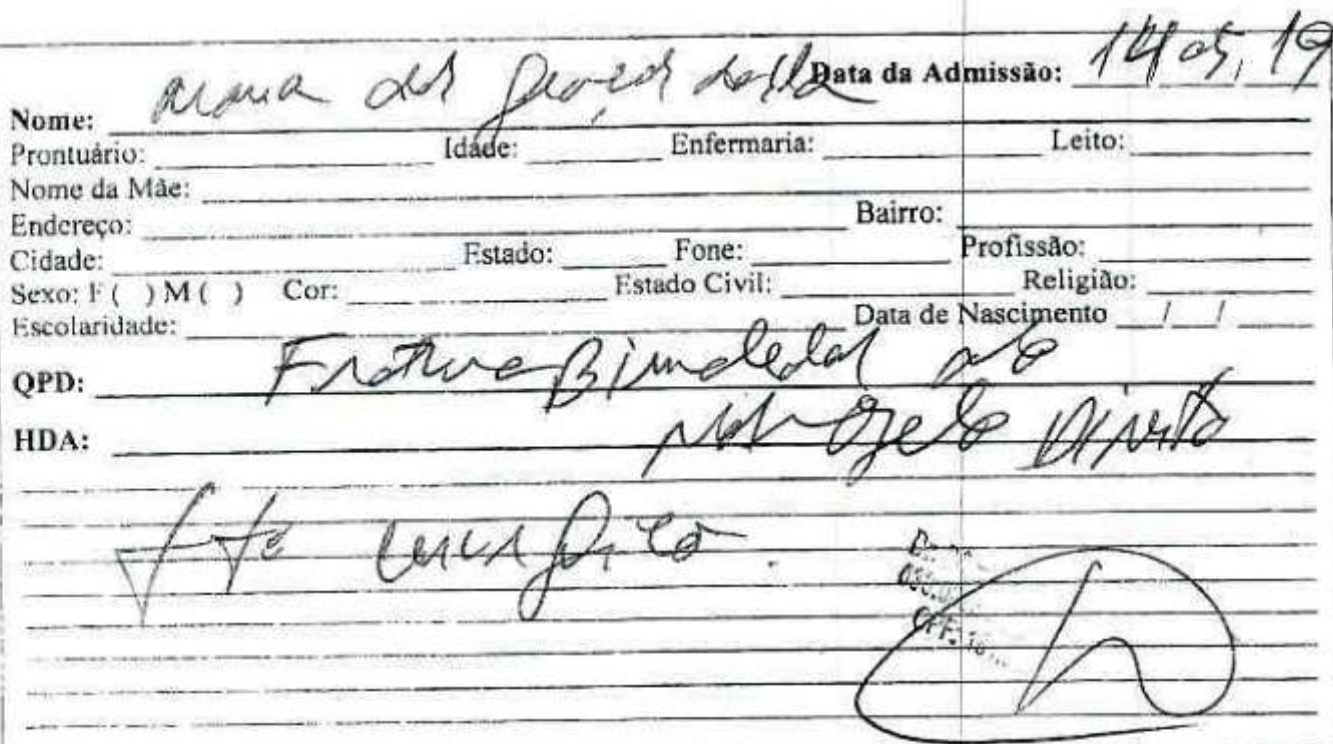 Data da Admissão: 14 05, 19
Nome: Maria das Graças da Silva
Prontuário: Idade: Enfermaria: Leito:
Nome da Mãe:
Endereço: Bairro:
Cidade: Estado: Fone: Profissão:
Sexo: F ( ) M ( ) Cor: Estado Civil: Religião:
Escolaridade: Data de Nascimento / /
QPD: Fratura Bimaleolar do
HDA: tornozelo Direito
tto cirúrgico.
CPF.